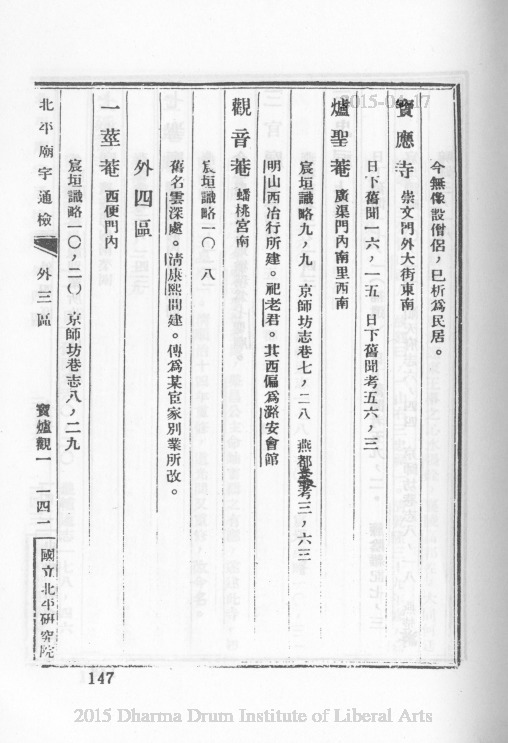 今無像設僧侶，已析爲民居。
寶應寺　崇文門外大街東南
日下舊聞一六，一五　日下舊聞考五六，三
爐聖菴　廣渠門內南里西南
宸垣識略九，九　京師坊志巷七，二八　燕都叢考三，六三
明山西冶行所建。祀老君。其西偏爲潞安會館
觀音菴　蟠桃宮南
宸垣識略一〇，八
舊名雲深處。清康熙間建。傳爲某宦家別業所改。
外四區
一莖菴　西便門內
宸垣識略一〇，二〇　京師坊巷志八，二九
北平廟宇通檢　外三區　寶爐觀一　一四一　國立北平研究院
147
2015-04-17
2015 Dharma Drum Institute of Liberal Arts